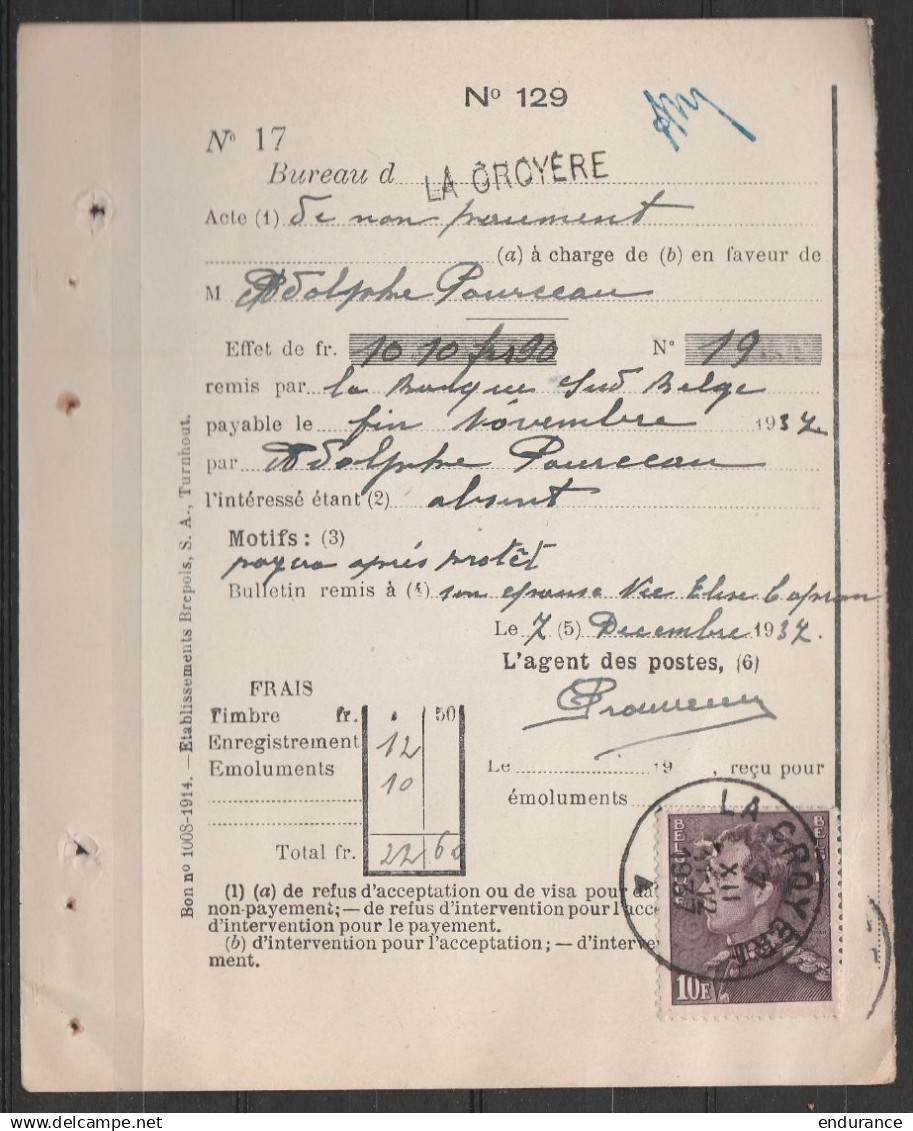 Nº 129
Nº 17
Bureau d LA CROYÈRE
Acte (1) de non paiement
(a) à charge de (b) en faveur de
M Adolphe Pourceau
Effet de fr. 1010 frs 90 Nº 19
remis par la Banque Sud Belge
payable le fin Novembre 1937
par Adolphe Pourceau
l'intéressé étant (2) absent
Motifs : (3)
payera après protêt
Bulletin remis à (4) son épouse Elise Capron
Le 7 (5) Decembre 1937.
L'agent des postes, (6)
FRAIS
Timbre fr. . 50
Enregistrement 12
Emoluments 10
Total fr. 22 60
Le 19 , reçu pour
émoluments
(1) (a) de refus d'acceptation ou de visa pour
non-payement; — de refus d'intervention pour l'acce
d'intervention pour le payement.
(b) d'intervention pour l'acceptation; — d'interve
ment.
Bon nº 1008-1914. — Etablissements Brepols, S. A., Turnhout.
LA CROYÈRE
7
XII
1937
10F
endurance